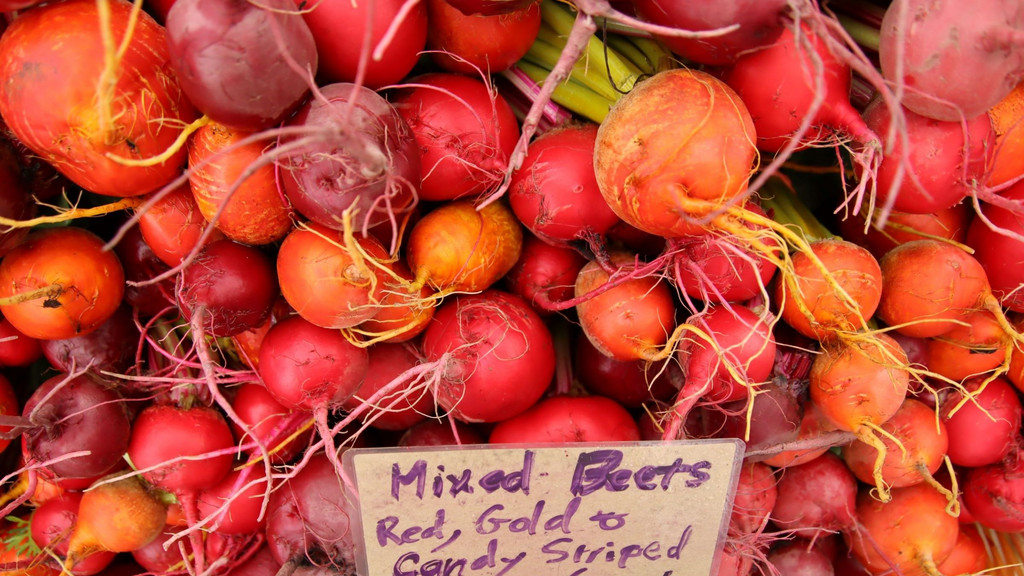 Mixed Beets
Red, Gold &
Candy Striped